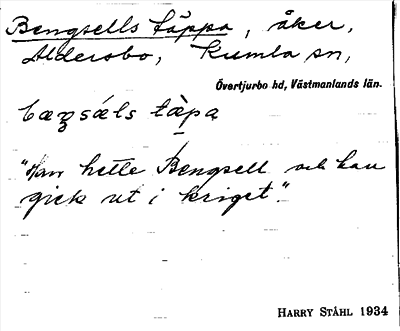 Bengsells täppa, åker,
Aldersbo, Kumla sn,
Övertjurbo hd, Västmanlands län.
tàpa
"Han hette Bengsell och han
gick ut i kriget".
HARRY STÅHL 1934